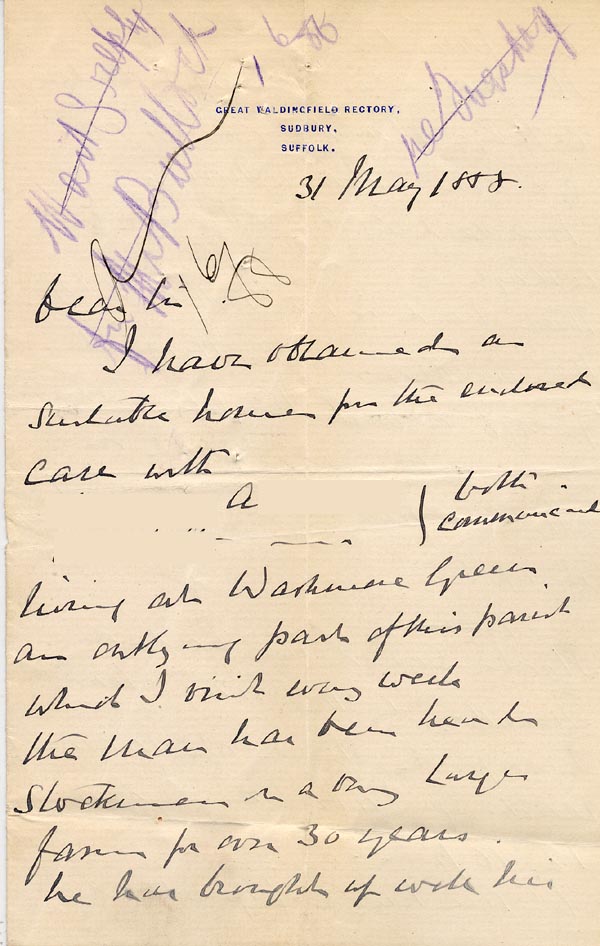 1/6/88
Wait Reply
Mr Bullock
re Tuesday
GREAT WALDINGFIELD RECTORY,
SUDBURY,
SUFFOLK.
31 May 1888.
Dear Sir
1/6/88
I have obtained a
suitable home for the enclosed
case with
A
both
communicants
living at Washmere Green
an outlying part of this parish
which I visit every week
the man has been head
Stockman on a very large
farm for over 30 years.
he has brought up with his